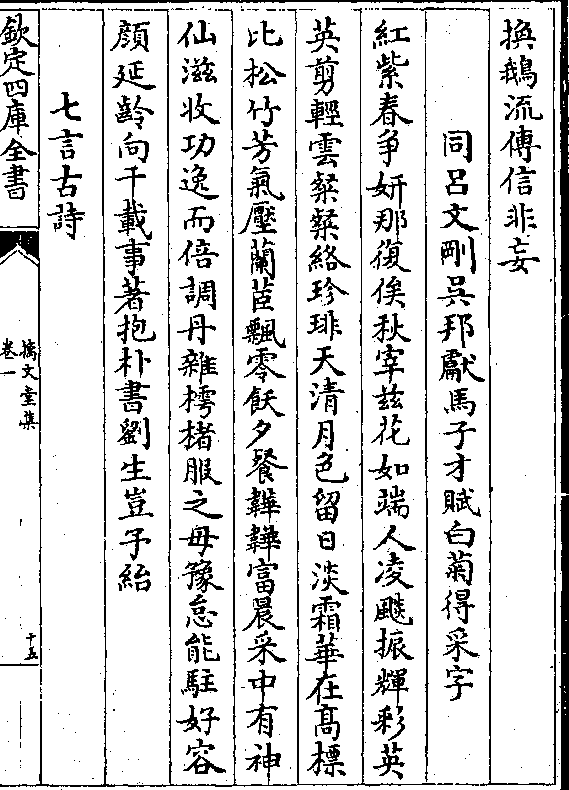 換鵝流傳信非妄
同呂文剛吳邦獻馬子才賦白菊得采字
紅紫春争妍那復俟秋宰兹花如端人凌飈振輝彩英
英剪輕雲粲粲絡珍琲天清月色留日淡霜華在髙標
比松竹芳氣壓蘭茝飄零飫夕餐韡韡富晨采中有神
仙滋收功逸而倍調丹雜樗楮服之毋豫怠能駐好容
顔延齡向千載事著抱朴書劉生豈予紿
七言古詩
欽定四庫全書
摛文堂集
卷一
十五